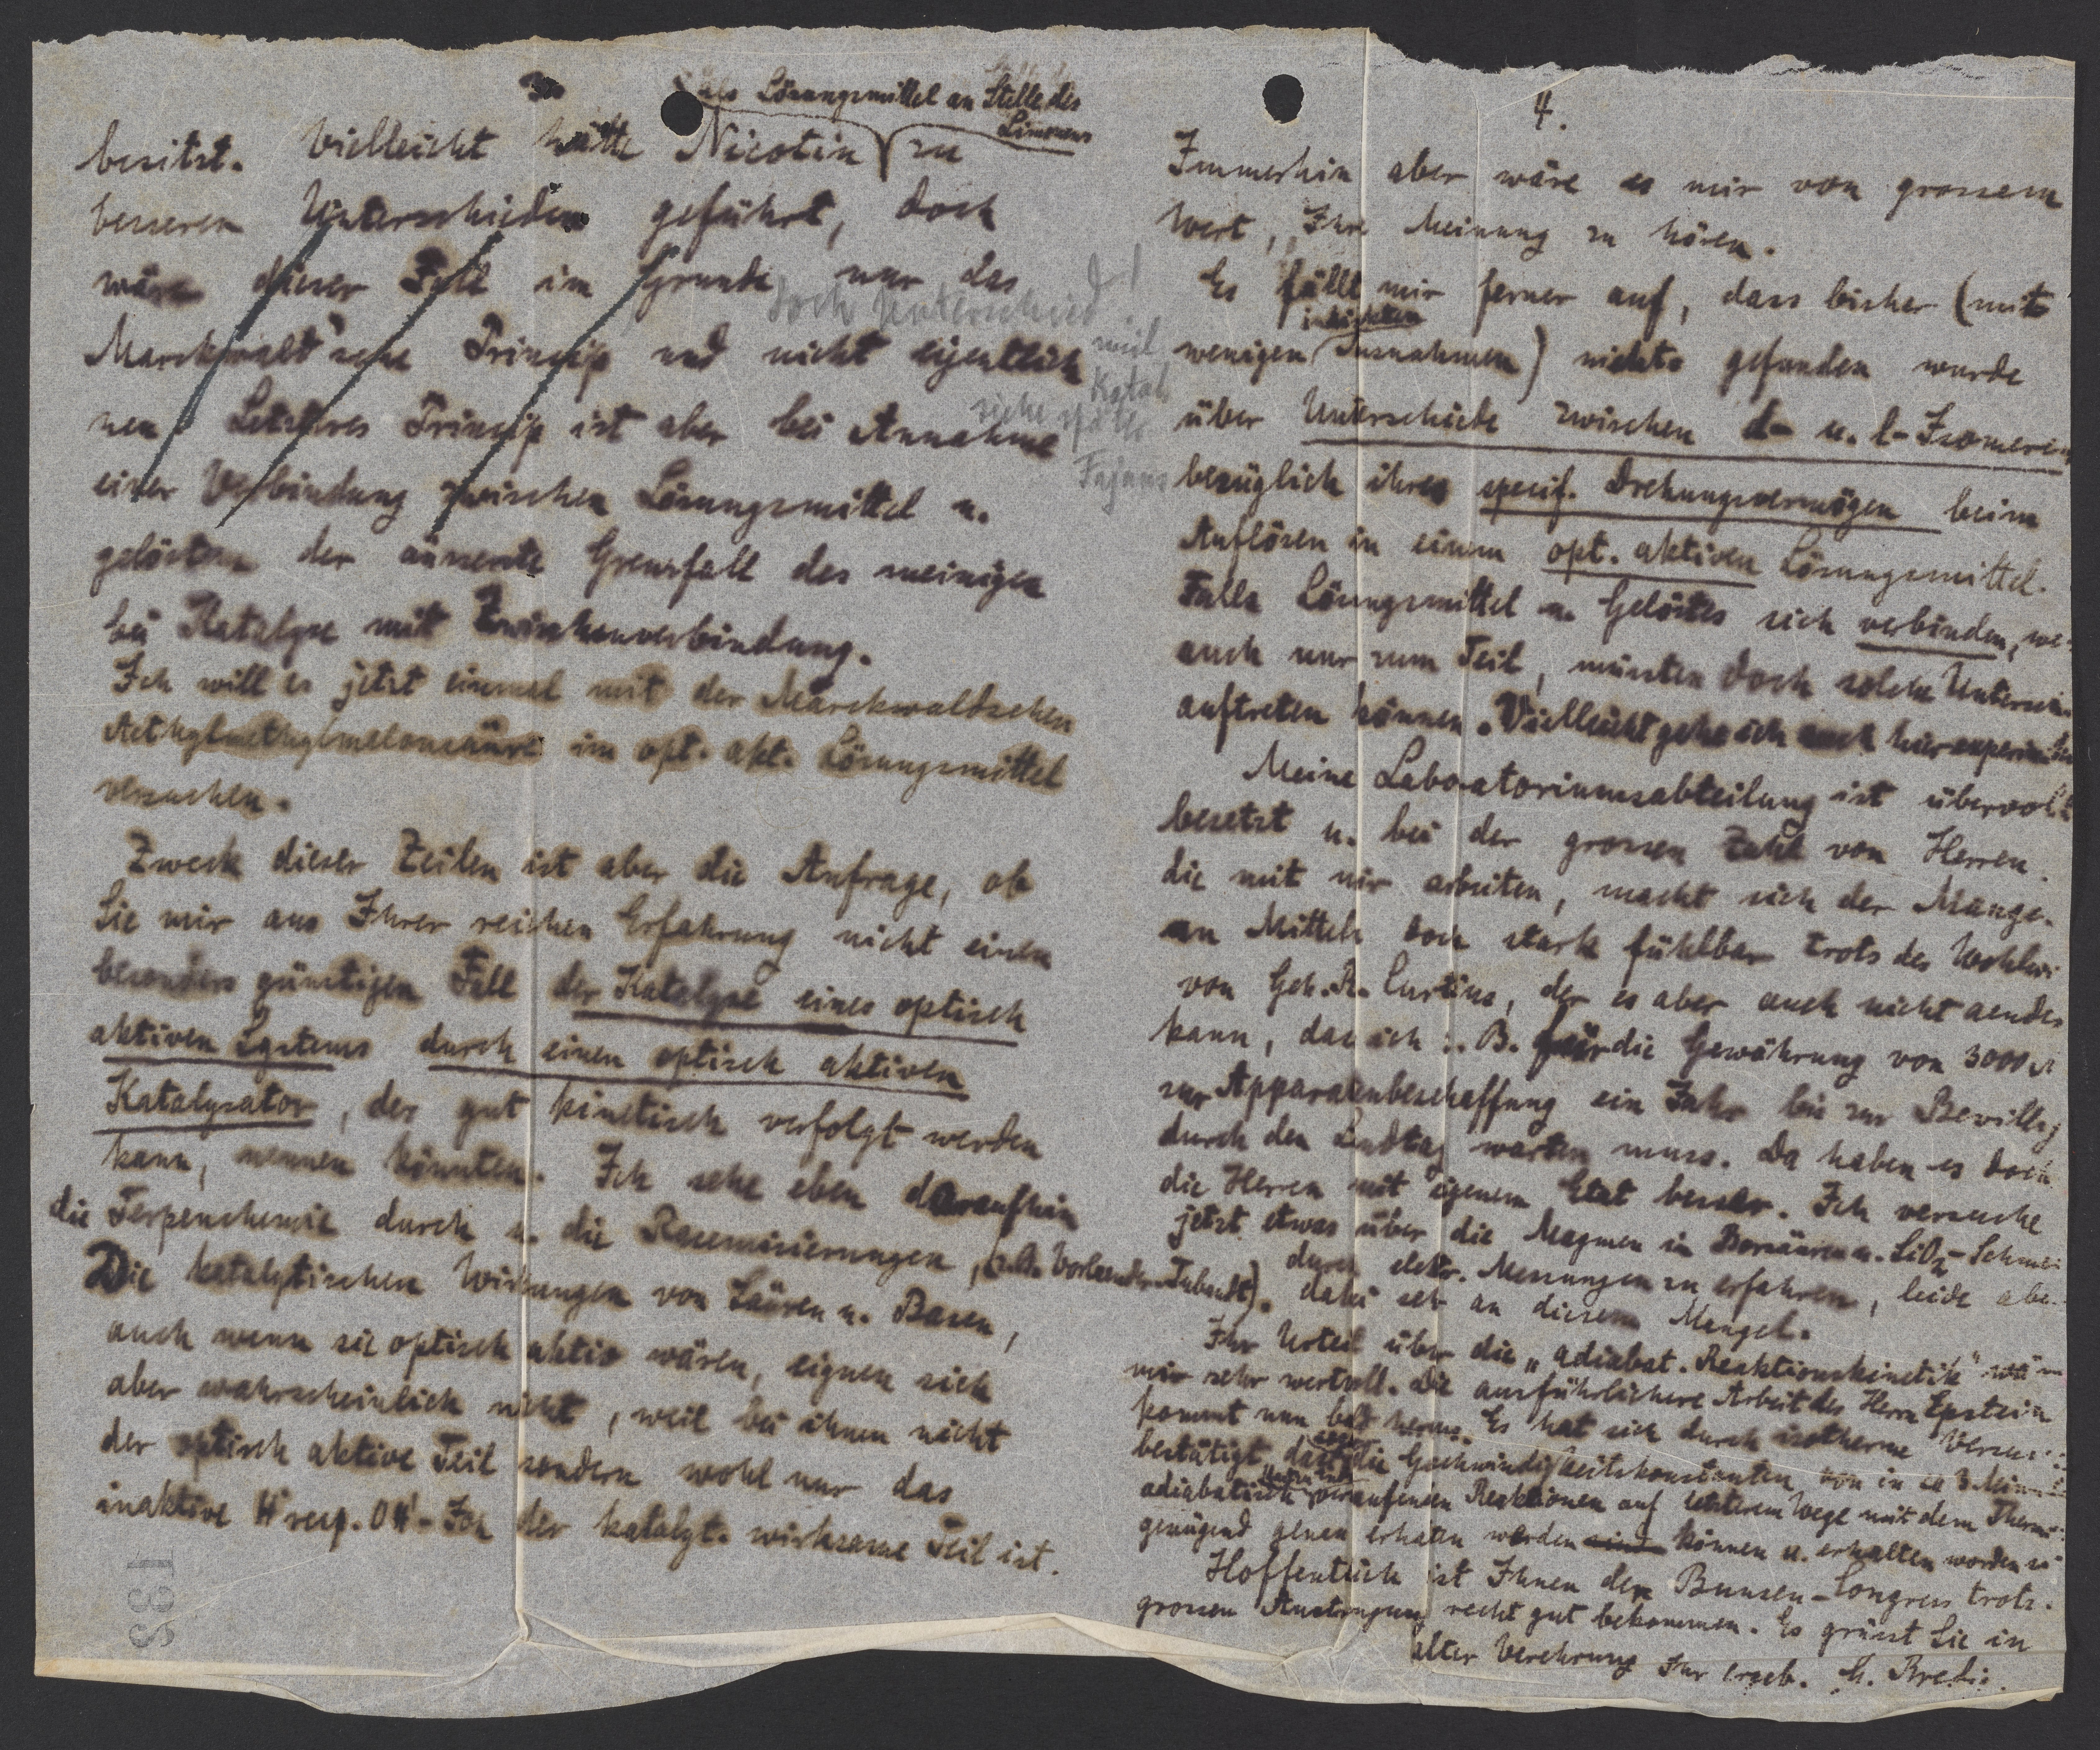 3.
als Lösungsmittel an Stelle des
Limonens
besitzt. Vielleicht hätte Nicotin zu
besseren Unterschieden geführt, doch
wäre dieser Fall im Grunde nur das
doch Unterschied
Marckwald'sche Prinzip und nicht eigentlich
weil Katal.
siehe später
Fajans
neu. Letzteres Prinzip ist aber bei Annahme
einer Verbindung zwischen Lösungsmittel u.
gelöstem der äusserste Grenzfall des meinigen
bei Katalyse mit Zwischenverbindung.
Ich will es jetzt einmal mit der Marckwaldschen
Aethylmethylmalonsäure im opt. akt. Lösungsmittel
versuchen.
Zweck dieser Zeilen ist aber die Anfrage, ob
Sie mir aus Ihrer reichen Erfahrung nicht einen
besonders günstigen Fall der Katalyse eines optisch
aktiven Systems durch einen optisch aktiven
Katalysator, der gut kinetisch verfolgt werden
kann, nennen könnten. Ich sehe eben daraufhin
die Terpenchemie durch u. die Racemisierungen,
Die katalytischen Wirkungen von Säuren u. Basen,
auch wenn sie optisch aktiv wären, eignen sich
aber wahrscheinlich nicht, weil bei ihnen nicht
der optisch aktive Teil sondern wohl nur das
inaktive H˙ resp. OH'-Ion der katalyt. wirksame Teil ist.
135
4.
Immerhin aber wäre es mir von grossem
Wert, Ihre Meinung zu hören.
Es fällt mir ferner auf, dass bisher (mit
wenigen Ausnahmen) nichts gefunden wurde
über Unterschiede zwischen d- u. l-Isomeren
bezüglich ihres specif. Drehungsvermögen beim
Auflösen in einem opt. aktiven Lösungsmittel.
Falls Lösungsmittel u. Gelöstes sich verbinden, we
auch nur zum Teil, müssten doch solche Untersch
auftreten können. Vielleicht gehe ich auch hier experim
Meine Laboratoriumsabteilung ist übervoll
besetzt u. bei der grossen Zahl von Herren
die mit mir arbeiten, macht sich der Mange
an Mitteln doch stark fühlbar trotz des Wohlw
von Geh. R. Curtius, der es aber auch nicht aendern
kann, das ich z. B. für die Gewährung von 3000 M
zur Apparatenbeschaffung ein Jahr bis zur Bewillig
durch den Landtag warten muss. Da haben es doch
die Herren mit eigenem Etat besser. Ich versuche
jetzt etwas über die Magmen in Borsäuren u. SiO2-Schmel
durch elektr. Messungen zu erfahren, leide aber
dabei sehr an diesem Mangel.
Ihr Urteil über die "adiabat. Reaktionskinetik" wäre
mir sehr wertvoll. Die ausführlichere Arbeit des Herrn Epstein
kommt nun bald heraus. Es hat sich durch isotherme Versuche
bestätigt, dass die Geschwindigkeitskonstanten von in ca 3 Min
adiabatisch verlaufenden Reaktionen auf letzterem Wege mit dem Thermo
genügend genau erhalten werden können u. erhalten worden si
Hoffentlich ist Ihnen der Bunsen-Congress trotz
grossen Anstrengung recht gut bekommen. Es grüsst Sie in
alter Verehrung Ihr ergeb. G. Bredig.